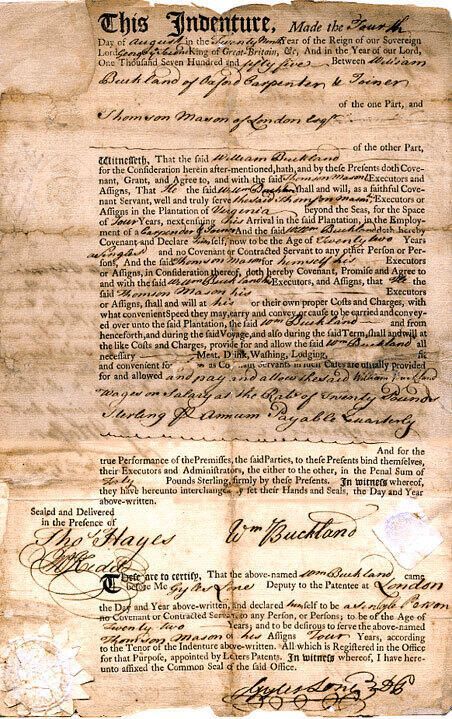 This Indenture, Made the Fourth
Day of August in the Twenty Ninth Year of the Reign of our Sovereign
Lord George the Second King of Great-Britain, &c. And in the Year of our Lord,
One Thousand Seven Hundred and fifty five Between William
Buckland of Oxford Carpenter & Joiner
of the one Part, and
Thomson Mason of London Esqr.
of the other Part,
WITNESSETH, That the said William Buckland
for the Consideration herein after-mentioned, hath, and by these Presents doth Cove-
nant, Grant, and Agree to, and with the said Thomson Mason Executors and
Assigns, That He the said Wm Buckland shall and will, as a faithful Cove-
nant Servant, well and truly serve the said Thomson Mason Executors or
Assigns in the Plantation of Virginia beyond the Seas, for the Space
of Four Years, next ensuing his Arrival in the said Plantation, in the Employ-
ment of a Carpenter & Joiner And the said Wm Buckland doth hereby
Covenant and Declare himself, now to be the Age of Twenty two Years
a single and no Covenant or Contracted Servant to any other Person or Per-
sons, And the said Thomson Mason for himself his Executors
or Assigns, in Consideration thereof, doth hereby Covenant, Promise and Agree to
and with the said Wm Buckland his Executors, and Assigns, that He the
said Thomson Mason his Executors
or Assigns, shall and will at his or their own proper Costs and Charges, with
what convenient Speed they may, carry and convey or cause to be carried and convey-
ed over unto the said Plantation, the said Wm Buckland and from
henceforth, and during the said Voyage, and also during the said Term, shall and will at
the like Costs and Charges, provide for and allow the said Wm Buckland all
necessary Meat, Drink, Washing, Lodging,
and convenient for as Covenant Servants in such Cases are usually provided
for and allowed and pay and allow the said William Buckland
Wages or Salary at the Rate of Twenty Pounds
Sterling P Annum Payable Quarterly
And for the
true Performance of the Premisses, the said Parties, to these Presents bind themselves,
their Executors and Administrators, the either to the other, in the Penal Sum of
Forty Pounds Sterling, firmly by these Presents. In witness whereof,
they have hereunto interchangeably set their Hands and Seals, the Day and Year
above-written.
Sealed and Delivered
in the Presence of
Tho Hayes
Wm Buckland
These are to certify, That the above-named Wm Buckland came
before Me Deputy to the Patentee at London
the Day and Year above-written, and declared himself to be a single Person
no Covenant or Contracted Servant to any Person, or Persons; to be of the Age of
Twenty two Years; and to be desirous to serve the above-named
Thomson Mason or his Assigns Four Years, according
to the Tenor of the Indenture above-written. All which is Registered in the Office
for that Purpose, appointed by Letters Patents. In witness whereof, I have here-
unto affixed the Common Seal of the said Office.